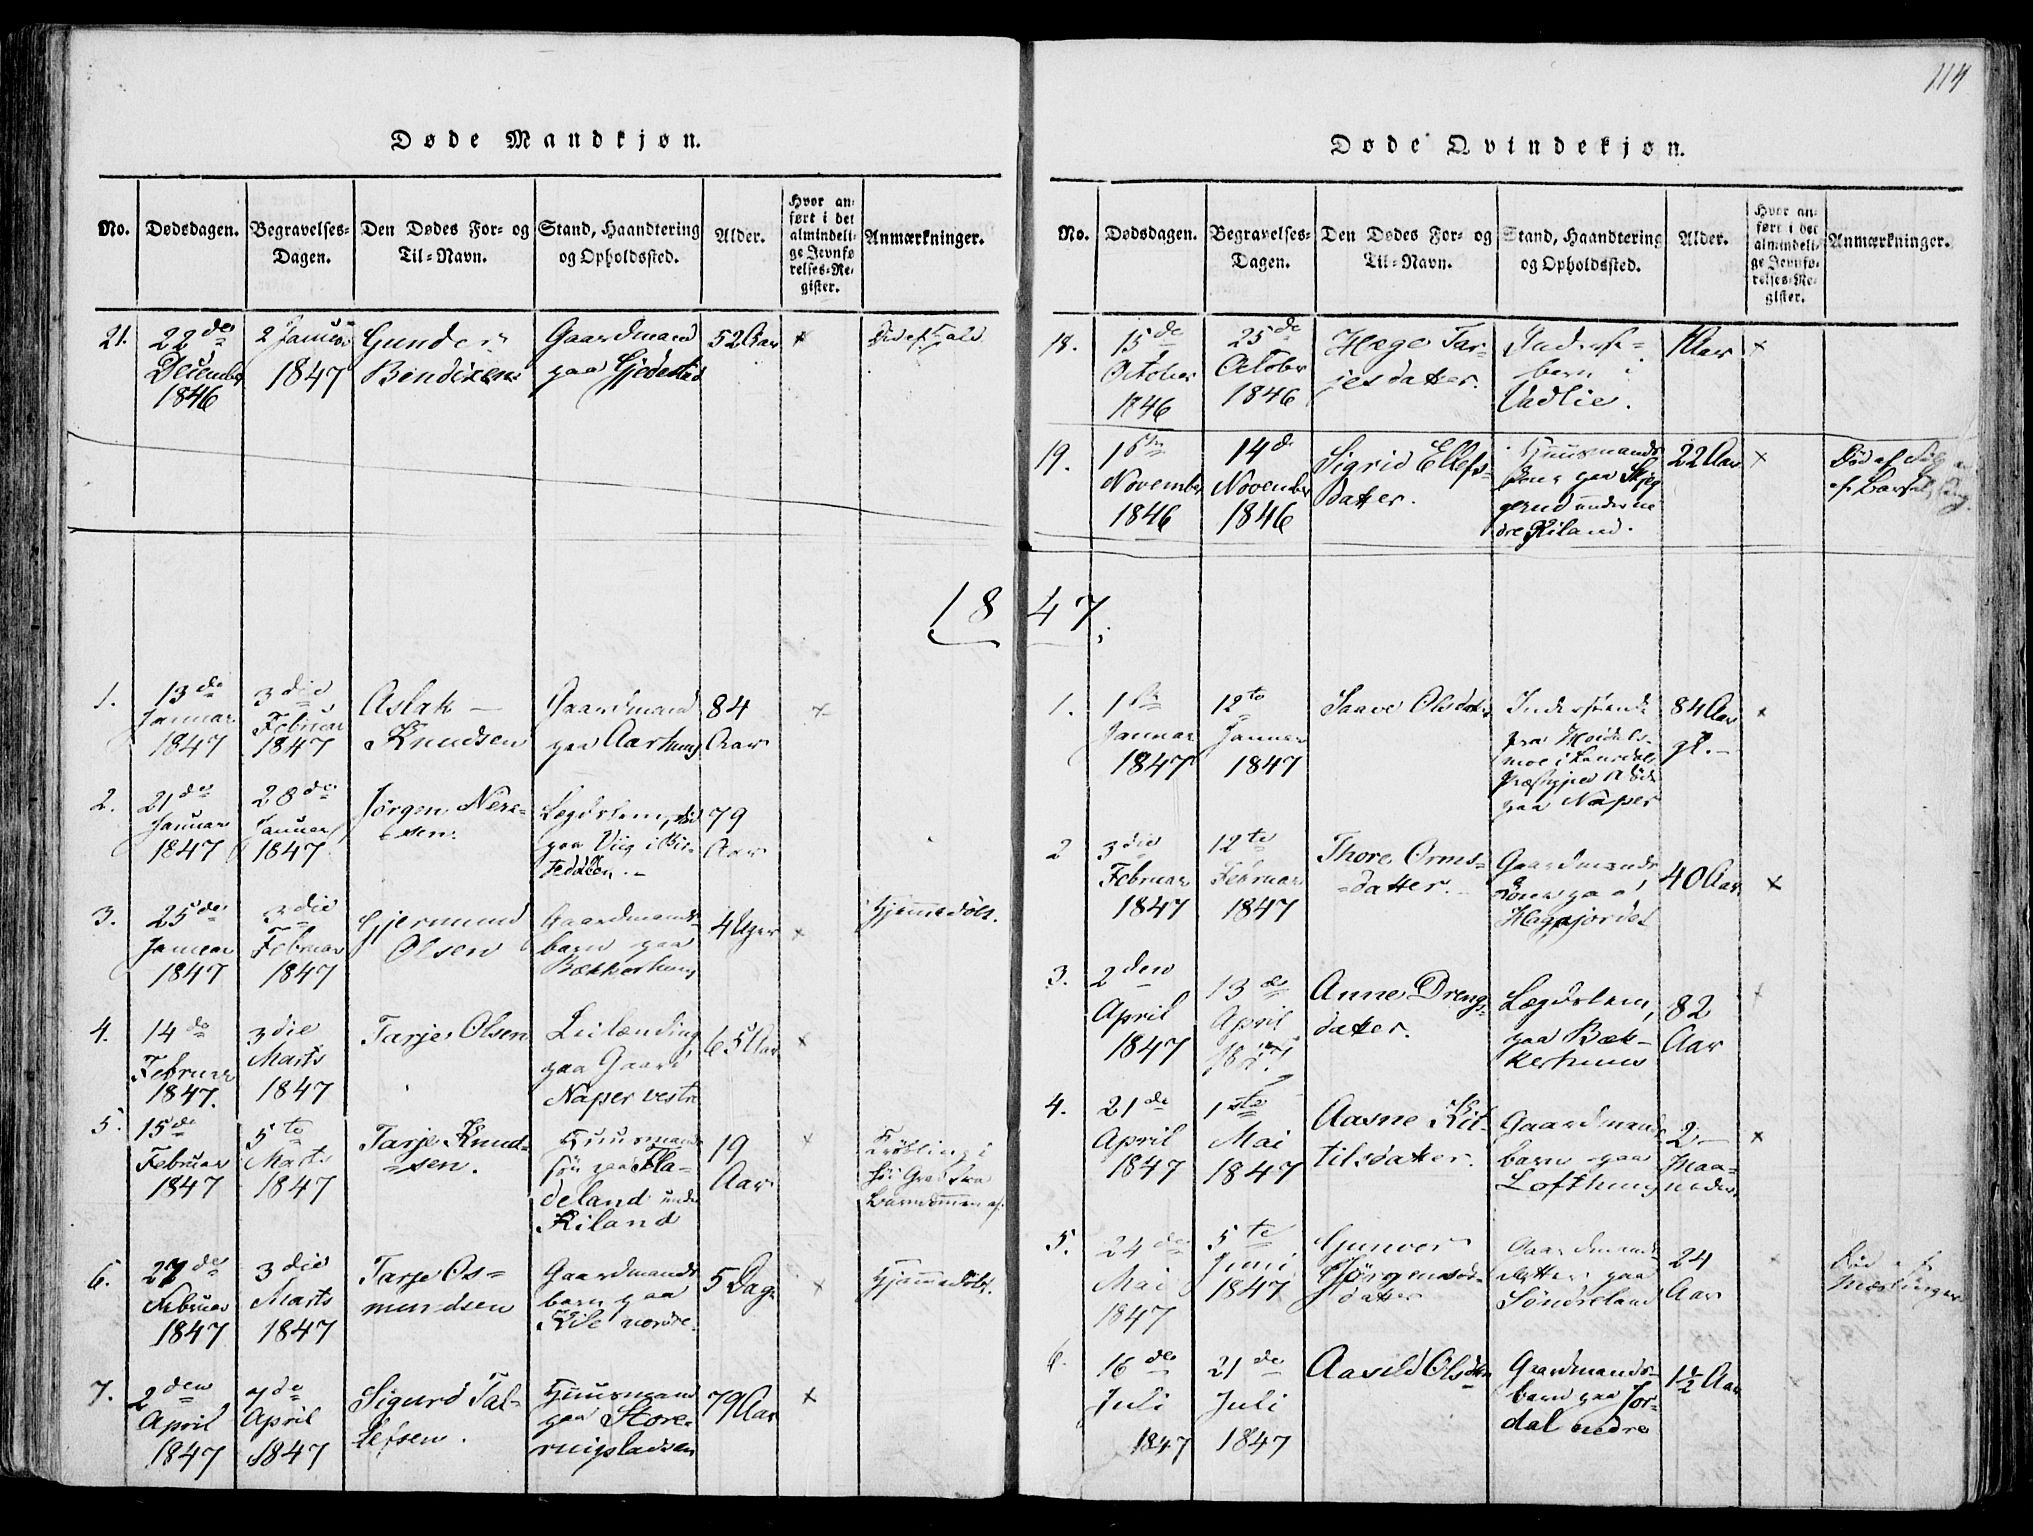 114
Døde Mandkjøn.
No. Dødsdagen. Begravelses-Dagen. Den Dødes For- og Til-Navn. Stand, Haandtering og Opholdssted. Alder. Hvor anført i det almindelige Jevnførelses-Register. Anmærkninger.
21. 22de December 1846 2 Januar 1847 Gunder Bendixen Gaardmand paa Gjedestad 52 Aar x
1847
1. 13de Januar 1847 3die Februar 1847 Aslak Knudsen Gaardmand paa Aarhuus 84 Aar x
2. 21de Januar 1847 28de Januar 1847 Jørgen Lægdslem, paa Viig i 79 Aar
3. 25de Januar 1847 3die Februar 1847 Gjermund Olsen Gaardmands barn paa Bækkerhuus 4 Uger x Hjemmedøbt.
4. 14de Februar 1847. 3die Marts 1847 Tarje Olsen Leilænding paa Gaard Naper vestre 65 Aar x
5. 15de Februar 1847 5te Marts 1847 Tarje Knud-
=sen. Huusmands søn paa Fla-
deland under Kiland 19 Aar x
6. 27de Februar 1847 3die Marts 1847 Tarje Os-
mundsen Gaardmands barn paa Kile nordre. 5 Dage x Hjemmedøbt.
7. 2den April 1847 7de April 1847 Sigurd Tal-
lefsen. Huusmand paa Store-
79 Aar x
Døde Qvindekjøn.
No. Dødsdagen. Begravelses-Dagen. Den Dødes For- og Til-Navn. Stand, Haandtering og Opholdssted. Alder. Hvor anført i det almindelige Jevnførelses-Register. Anmærkninger.
18. 15de October 1846 25de October 1846 Hæge Tar-
jesdatter. barn i Vadlie. 1 Aar x
19. November 1846 14de November 1846 Sigrid Ellefs-
datter. Huusmands Kone paa under ne
dre Kiland. 22 Aar x Død af
1. 1ste Januar 1847 12te Januar 1847 Saave Olsdatter Inderste fra paa Naper 84 Aar gl. x
2 3die Februar 1847 12te Februar 1847 Thore Orms-
=datter. Gaardmands Kone paa 40 Aar x
3. 2den April 1847 13de April Anne Drengs-
datter. Lægdslem, paa Bæk-
kerhuus 82 Aar x
4. 21de April 1847 1ste Mai 1847 Aasne Kit-
tilsdatter. Gaardmands barn paa Lofthuus 2 Maa-
neder. x
5. 24de Mai 1847 5te Juni 1847 Gunver Jørgens-
datter Gaardmands datter paa Søndreland 24 Aar x Død af Mæslinger
6. 16de Juli 1847 21de Juli 1847 Aasild Olsdatter Gaardmands-
barn paa Jor-
dal nedre 1½ Aar x